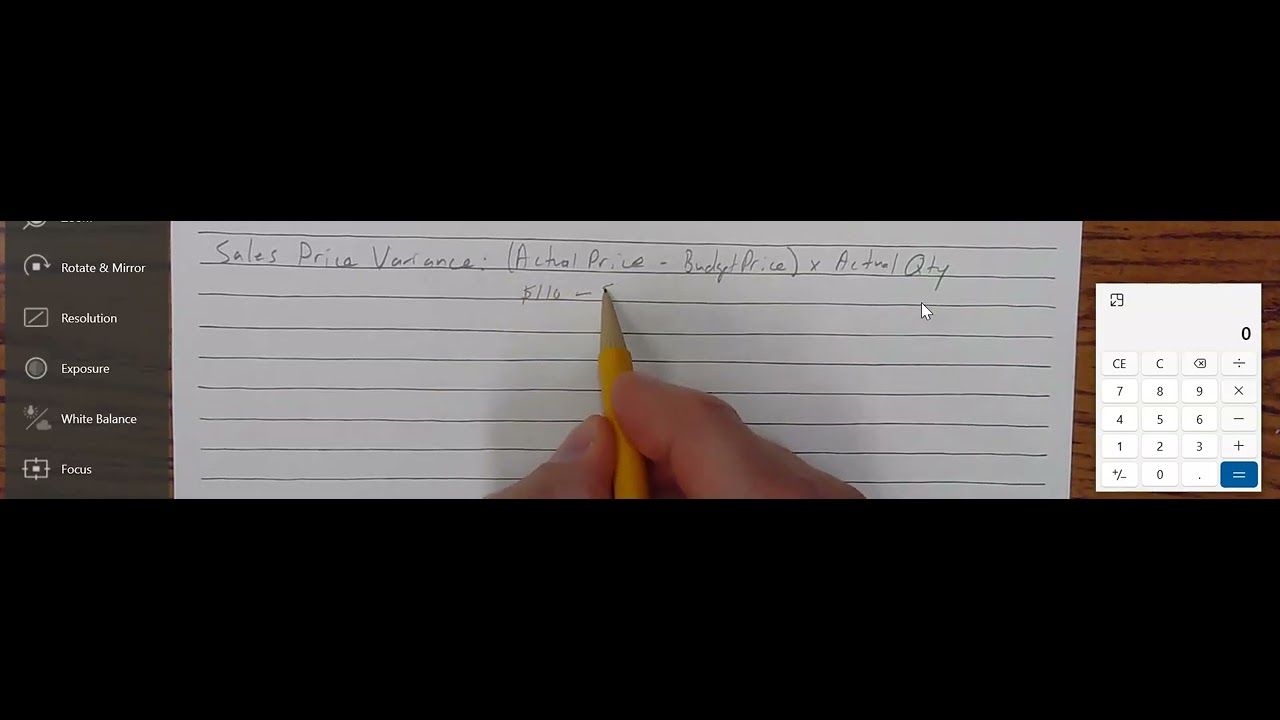 Sales Price Variance: (Actual Price - Budget Price) x Actual Qty
$110 -
Rotate & Mirror
Resolution
Exposure
White Balance
Focus
0
CE C ⌫ ÷
7 8 9 ×
4 5 6 −
1 2 3 +
+/− 0 . =